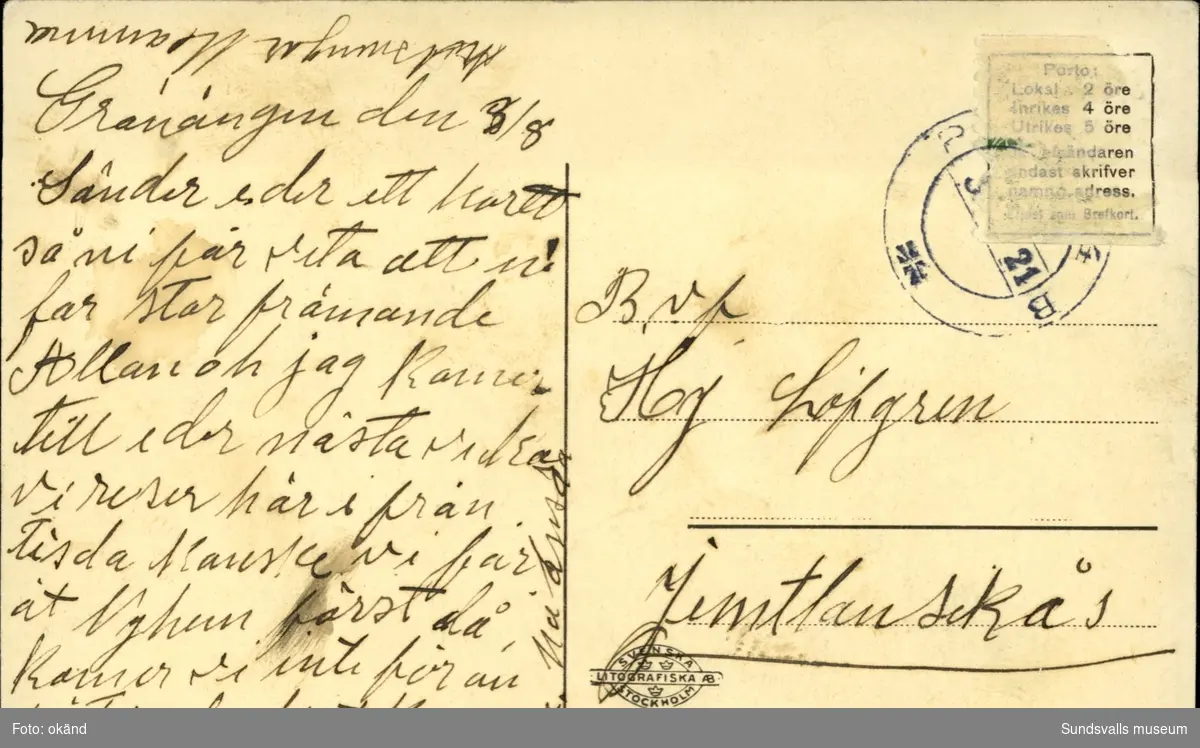 Mamma
Gränängen den 3/8
Sänder eder ett kortt
så ni får veta att ni
får stor främande
Allan oh jag komer
till eder nästa vicka
vi reser här i från
tisda kanske vi far
åt Nyhem först då
komer vi inte för än
Porto:
Lokal 2 öre
Inrikes 4 öre
Utrikes 5 öre
afsändaren
endast skrifver
namn o. adress.
som Brefkort.
21
B
B. v f
Hg Löfgren
Jemtlansikås
SVENSKA
LITOGRAFISKA AB
STOCKHOLM
Foto: okänd
Sundsvalls museum